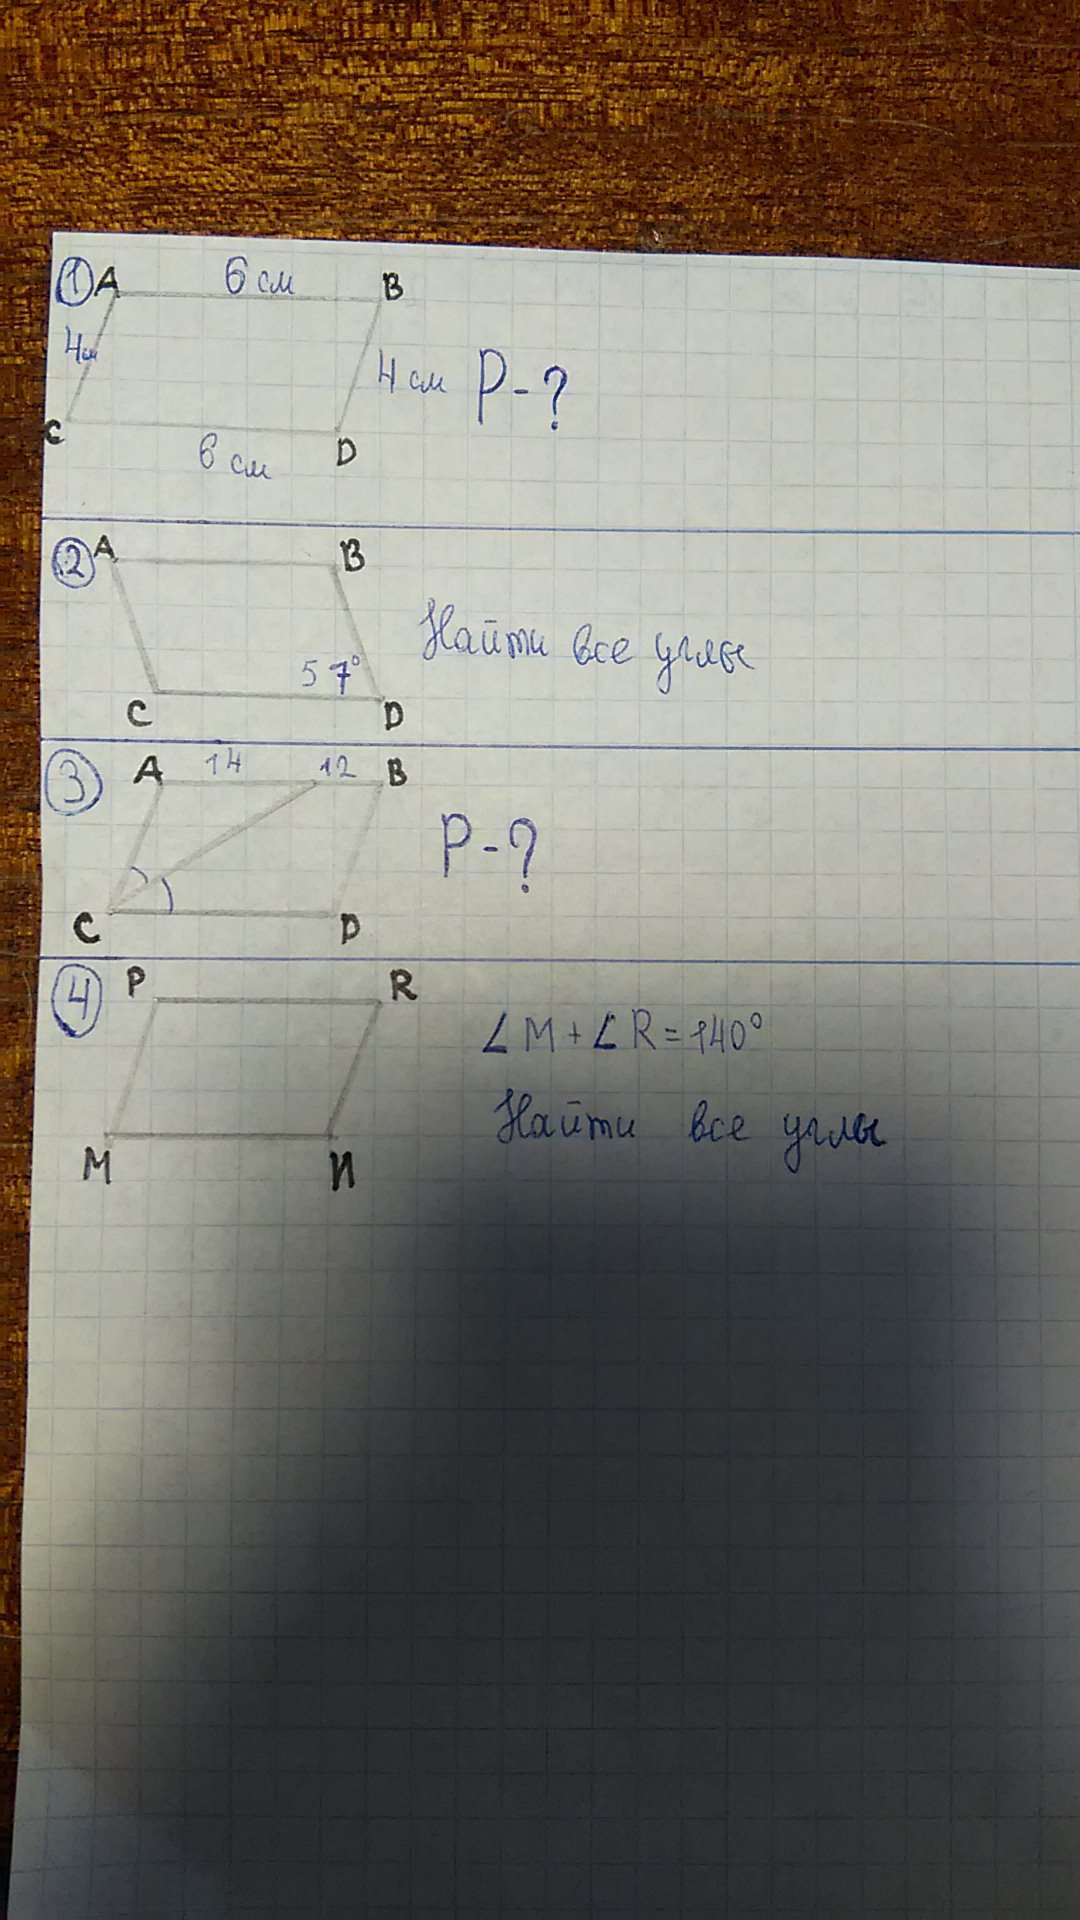 ① A 6 см B
4см
4 см P-?
C
6 см D
② A B
Найти все углы
57°
C D
③ A 14 12 B
P-?
C D
④ P R
∠M+∠R=140°
Найти все углы
M И